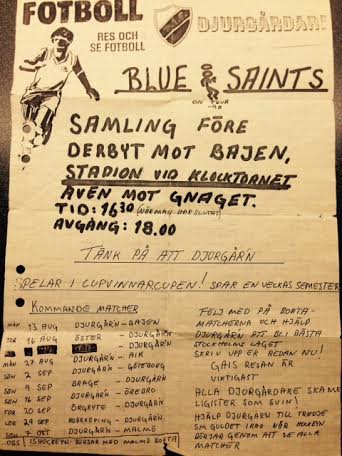 FOTBOLL
RES OCH
SE FOTBOLL
DJURGÅRDARE
BLUE SAINTS
ON TOUR
-90
SAMLING FÖRE
DERBYT MOT BAJEN,
STADION VID KLOCKTORNET
ÄVEN MOT GNAGET.
TID: 16³⁰ (NÄR MAN HAR SLUTAT)
AVGÅNG: 18.00
TÄNK PÅ ATT DJURGÅR'N
SPELAR I CUPVINNARCUPEN! SPAR EN VECKAS SEMESTER
KOMMANDE MATCHER
MÅN 13 AUG DJURGÅR'N - BAJEN
TOR 16 AUG ÖSTER - DJURGÅR'N
MÅN 27 AUG DJURGÅR'N - AIK
SÖN 2 SEP DJURGÅR'N - GÖTEBORG
SÖN 9 SEP BRAGE - DJURGÅR'N
SÖN 16 SEP DJURGÅR'N - ÖREBRO
TOR 20 SEP ÖRGRYTE - DJURGÅR'N
LÖR 29 SEP NORRKÖPING - DJURGÅR'N
SÖN 7 OKT DJURGÅR'N - MALMÖ
OBS! ISHOCKEYN BÖRJAR MED MALMÖ BORTA
FÖLJ MED PÅ BORTA-
MATCHERNA OCH HJÄLP
DJURGÅR'N ATT BLI BÄSTA
STOCKHOLMS LAGET
SKRIV UPP ER REDAN NU!
GAIS RESAN ÄR
VIKTIGAST
ALLA DJURGÅRDARE SKA ME
LIGISTER SOM SVIN!
HJÄLP DJURGÅR'N TILL TREDJE
SM GULDET INNAN HOCKEYN
BÖRJAR GENOM ATT SE ALLA
MATCHER